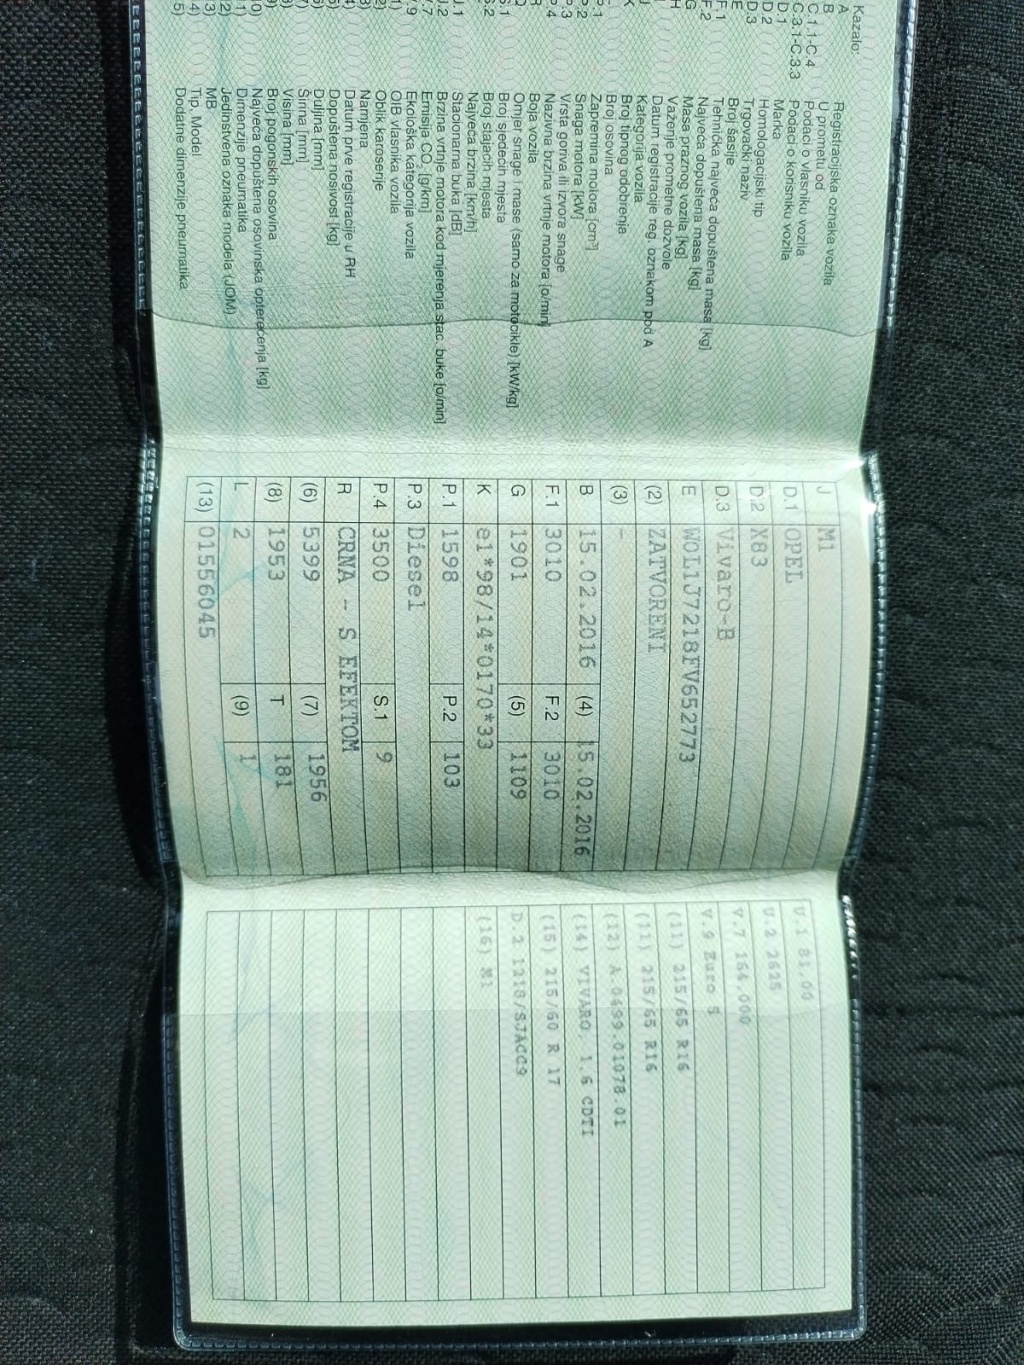 Kazalo:
A Registracijska oznaka vozila
B U prometu od
C.1.1-C.4 Podaci o vlasniku vozila
C.3.1-C.3.3 Podaci o korisniku vozila
D.1 Marka
D.2 Homologacijski tip
D.3 Trgovački naziv
E Broj šasije
F.1 Tehnička najveća dopuštena masa [kg]
F.2 Najveća dopuštena masa [kg]
G Masa praznog vozila [kg]
H Važenje prometne dozvole
Datum registracije reg. oznakom pod A
J Kategorija vozila
K Broj tipnog odobrenja
Broj osovina
P.1 Zapremina motora [cm³]
P.2 Snaga motora [kW]
P.3 Vrsta goriva ili izvora snage
P.4 Nazivna brzina vrtnje motora [o/min]
R Boja vozila
Q Omjer snage i mase (samo za motocikle) [kW/kg]
S.1 Broj sjedećih mjesta
S.2 Broj stajaćih mjesta
Najveća brzina [km/h]
U.1 Stacionarna buka [dB]
U.2 Brzina vrtnje motora kod mjerenja stac. buke [o/min]
V.7 Emisija CO₂ [g/km]
V.9 Ekološka kategorija vozila
1) OIB vlasnika vozila
2) Oblik karoserije
3) Namjena
4) Datum prve registracije u RH
5) Dopuštena nosivost [kg]
6) Duljina [mm]
7) Širina [mm]
8) Visina [mm]
9) Broj pogonskih osovina
10) Najveća dopuštena osovinska opterećenja [kg]
11) Dimenzije pneumatika
12) Jedinstvena oznaka modela (JOM)
13) MB
14) Tip, Model
15) Dodatne dimenzije pneumatika
J M1
D.1 OPEL
D.2 X83
D.3 Vivaro-B
E W0L1J7218FV652773
(2) ZATVORENI
(3) -
B 15.02.2016 (4) 15.02.2016
F.1 3010 F.2 3010
G 1901 (5) 1109
K e1*98/14*0170*33
P.1 1598 P.2 103
P.3 Diesel
P.4 3500 S.1 9
R CRNA - S EFEKTOM
(6) 5399 (7) 1956
(8) 1953 T 181
L 2 (9) 1
(13) 01556045
U.1 81.00
U.2 2625
V.7 164.000
V.9 Euro 5
(11) 215/65 R16
(11) 215/65 R16
(12) A.0499.01078.01
(14) VIVARO, 1.6 CDTI
(15) 215/60 R 17
D.2 1218/SJACC9
(16) M1